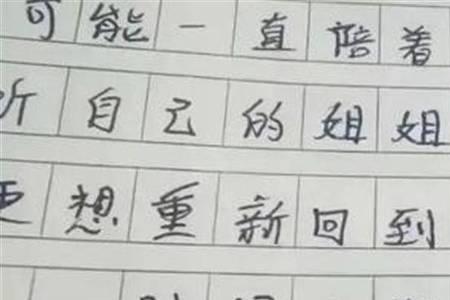 可能一直陪着
自己的姐姐
想重新回到